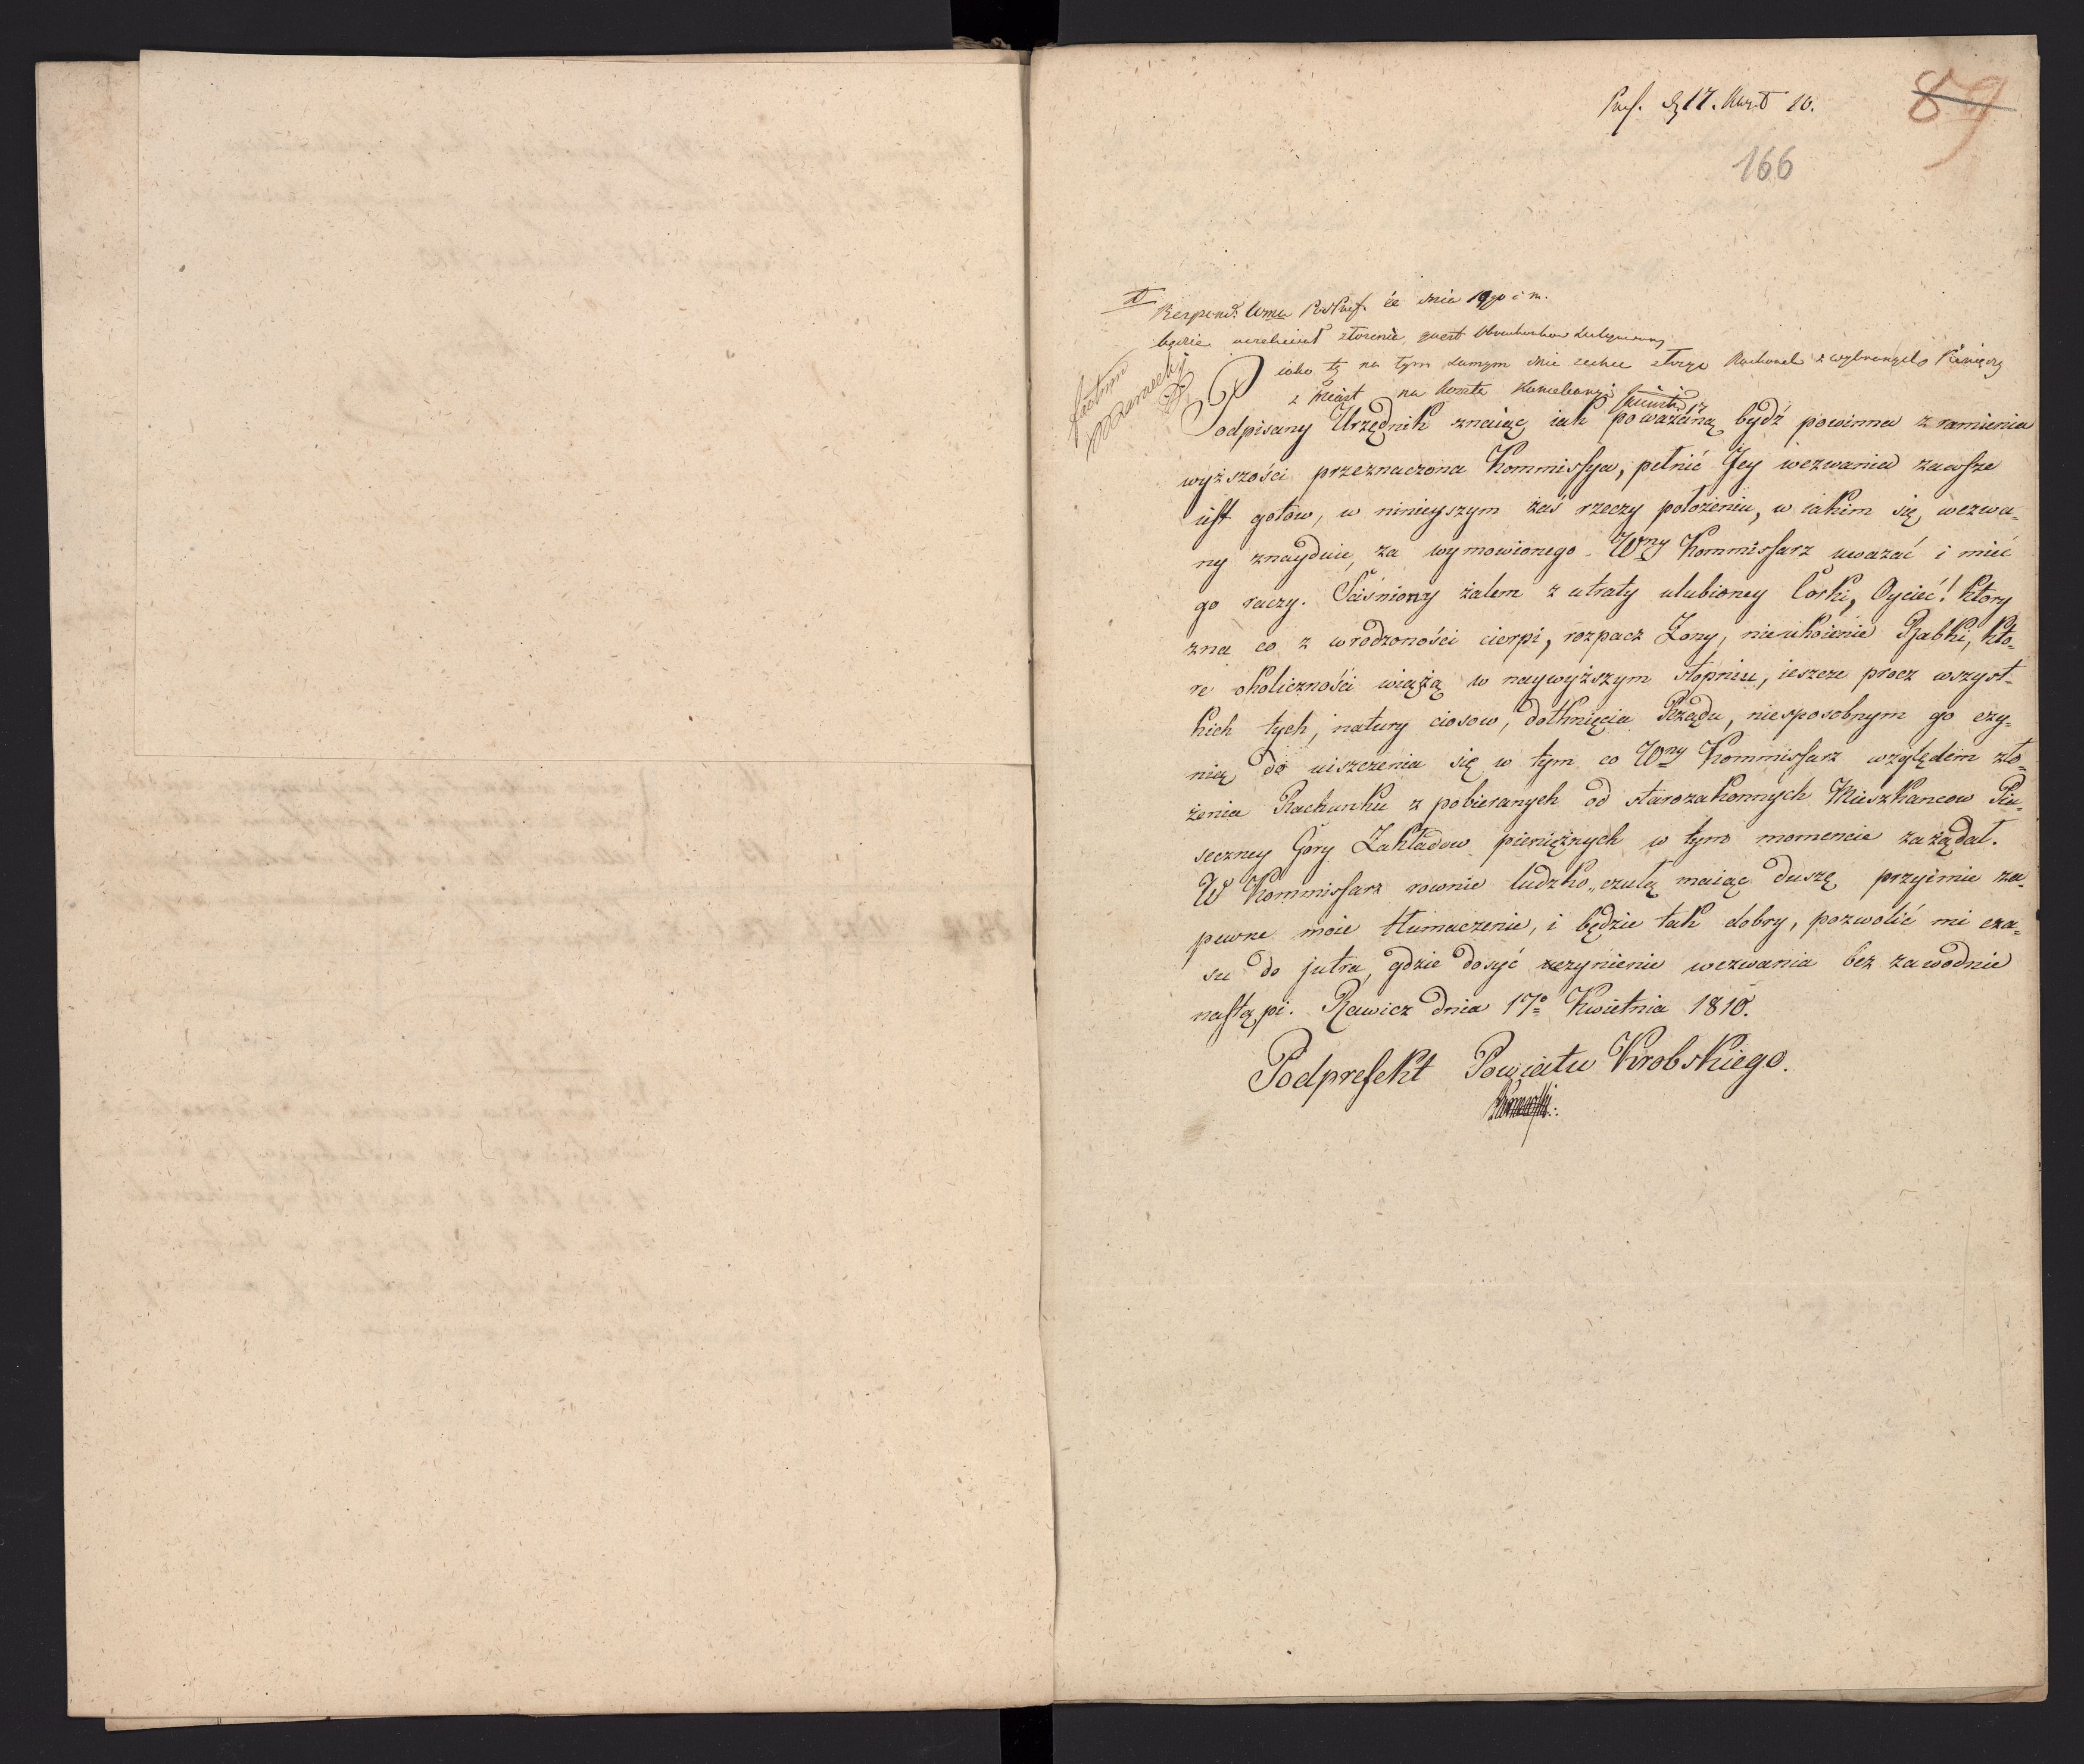 d 17. Kwt 10.
89
166
Respond. Wmu PodPref. że dnia 19go i m.
będzie oczekiwał złożenia
iako tż na tym samym dnie zechce złożyć Rachunek z wybranych Pieniędzy
z Miast na koszta Kancelaryi
factum
Podpisany Urzędnik znaiąc iak poważaną bydź powinna z ramienia
wyższości przeznaczona Kommissya, pełnić Jey wezwania zawsze
iest gotow, w ninieyszym zaś rzeczy położeniu, w iakim się wezwa=
ny znayduie, za wymowionego Wny Kommissarz uważać i mieć
go raczy. Sciśniony żalem z utraty ulubioney Corki, Oyciec! ktory
zna co z wrodzoności cierpi, rozpacz Zony, nieukoienie Babki, kto=
re okoliczności wiążą w naywyższym stopniu, ieszcze procz wszyst=
kich tych, natury ciosow, dotknięcia Rządu, niesposobnym go czy=
nią do uiszczenia się w tym co Wny Kommissarz względem zło=
żenia Rachunku z pobieranych od starozakonnych Mieszkancow Pia=
seczney Gory Zakładow pieniężnych w tym momencie zażądał.
W Kommissarz rownie ludzko„czułą maiąc duszę przyimie za=
pewne moie tłumaczenie, i będzie tak dobry, pozwolić mi cza=
su do jutra, gdzie dosyć uczynienie wezwania bez zawodnie
nastąpi. Rawicz dnia 17o Kwietnia 1810.
Podprefekt Powiatu Krobskiego.